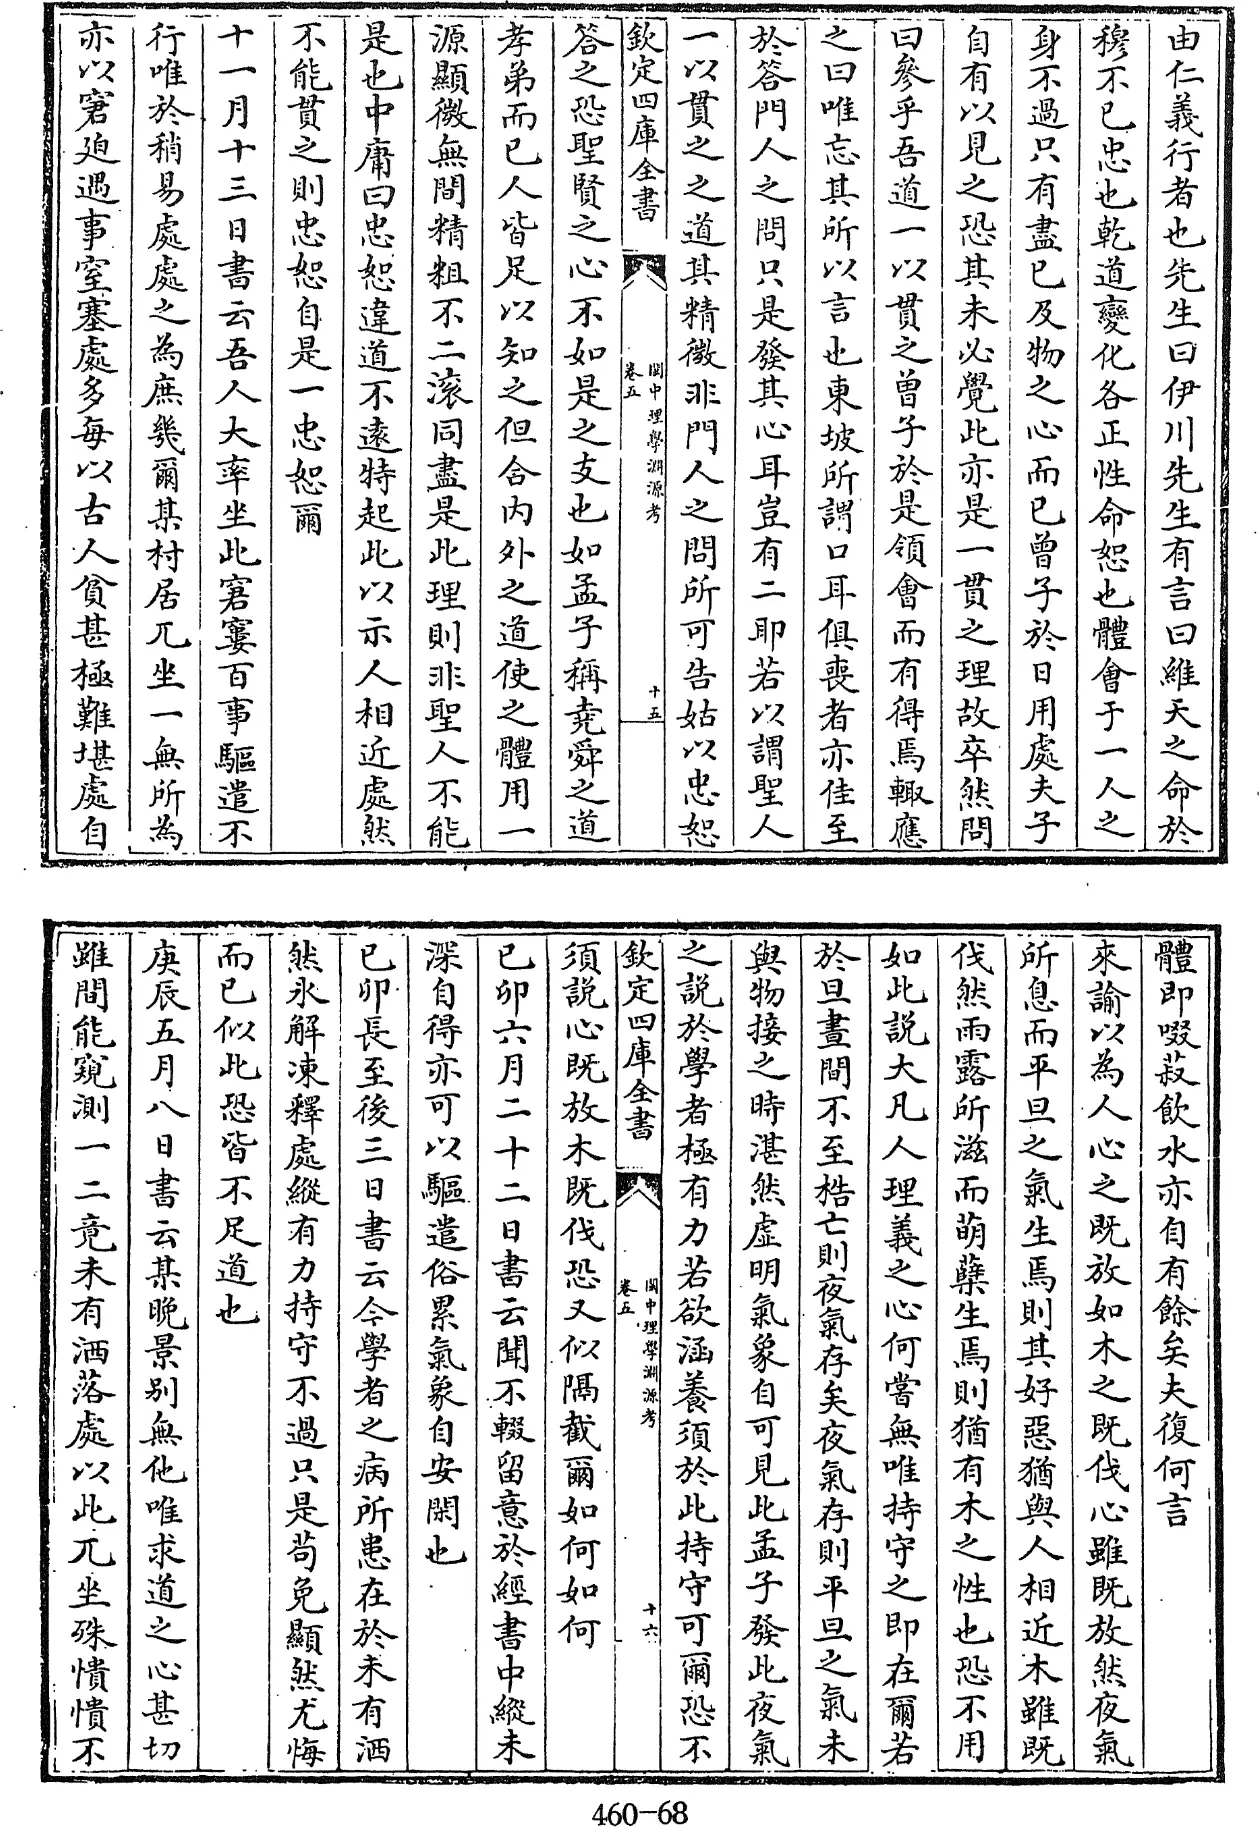 由仁義行者也先生曰伊川先生有言曰維天之命於
穆不已忠也乾道變化各正性命恕也體會于一人之
身不過只有盡已及物之心而已曾子於日用處夫子
自有以見之恐其未必覺此亦是一貫之理故卒然問
曰參乎吾道一以貫之曾子於是領會而有得焉輙應
之曰唯忘其所以言也東坡所謂口耳俱喪者亦佳至
於答門人之問只是發其心耳豈有二耶若以謂聖人
一以貫之之道其精微非門人之問所可告姑以忠恕
欽定四庫全書
閩中理學淵源考
卷五
十五
答之恐聖賢之心不如是之支也如孟子稱堯舜之道
孝弟而已人皆足以知之但合内外之道使之體用一
源顯微無間精粗不二滚同盡是此理則非聖人不能
是也中庸曰忠恕違道不逺特起此以示人相近處然
不能貫之則忠恕自是一忠恕爾
十一月十三日書云吾人大率坐此窘窶百事驅遣不
行唯於稍易處處之為庶幾爾某村居兀坐一無所為
亦以窘廹遇事窒塞處多每以古人貧甚極難堪處自
體即啜菽飲水亦自有餘矣夫復何言
來諭以為人心之既放如木之既伐心雖既放然夜氣
所息而平旦之氣生焉則其好惡猶與人相近木雖既
伐然雨露所滋而萌蘖生焉則猶有木之性也恐不用
如此説大凡人理義之心何嘗無唯持守之即在爾若
於旦晝間不至梏亡則夜氣存矣夜氣存則平旦之氣未
與物接之時湛然虚明氣象自可見此孟子發此夜氣
之説於學者極有力若欲涵養須於此持守可爾恐不
欽定四庫全書
閩中理學淵源考
卷五
十六
須説心既放木既伐恐又似隔截爾如何如何
已卯六月二十二日書云聞不輟留意於經書中縱未
深自得亦可以驅遣俗累氣象自安閑也
已卯長至後三日書云今學者之病所患在於未有洒
然氷解凍釋處縱有力持守不過只是苟免顯然尤悔
而已似此恐皆不足道也
庚辰五月八日書云某晚景别無他唯求道之心甚切
雖間能窺測一二竟未有洒落處以此兀坐殊憒憒不
460-68